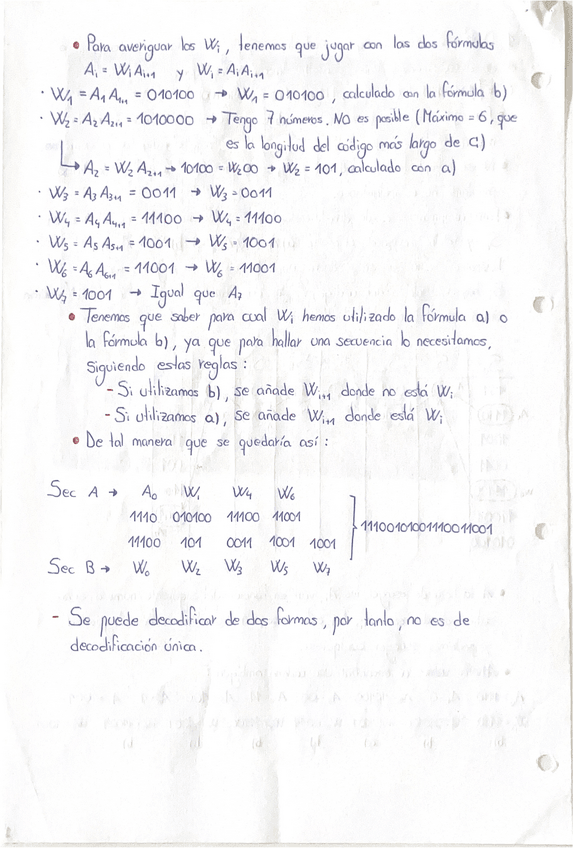 • Para averiguar los Wi, tenemos que jugar con las dos fórmulas
Ai = Wi Ai+1 y Wi = Ai Ai+1
· W1 = A1 A1+1 = 010100 → W1 = 010100, calculado con la fórmula b)
· W2 = A2 A2+1 = 1010000 → Tengo 7 números. NO es posible (Máximo = 6, que
es la longitud del código más largo de C)
↳ A2 = W2 A2+1 → 10100 = W200 → W2 = 101, calculado con a)
· W3 = A3 A3+1 = 0011 → W3 = 0011
· W4 = A4 A4+1 = 11100 → W4 = 11100
· W5 = A5 A5+1 = 1001 → W5 = 1001
· W6 = A6 A6+1 = 11001 → W6 = 11001
· W7 = 1001 → Igual que A7
• Tenemos que saber para cual Wi hemos utilizado la fórmula a) o
la fórmula b), ya que para hallar una secuencia lo necesitamos,
siguiendo estas reglas:
- Si utilizamos b), se añade Wi+1 donde no está Wi
- Si utilizamos a), se añade Wi+1 donde está Wi
• De tal manera que se quedaría así:
Sec A → A0 W1 W4 W6
1110 010100 11100 11001
1110010100111001 1001
11100 101 0011 1001 1001
Sec B → W0 W2 W3 W5 W7
- Se puede decodificar de dos formas, por tanto, no es de
decodificación única.